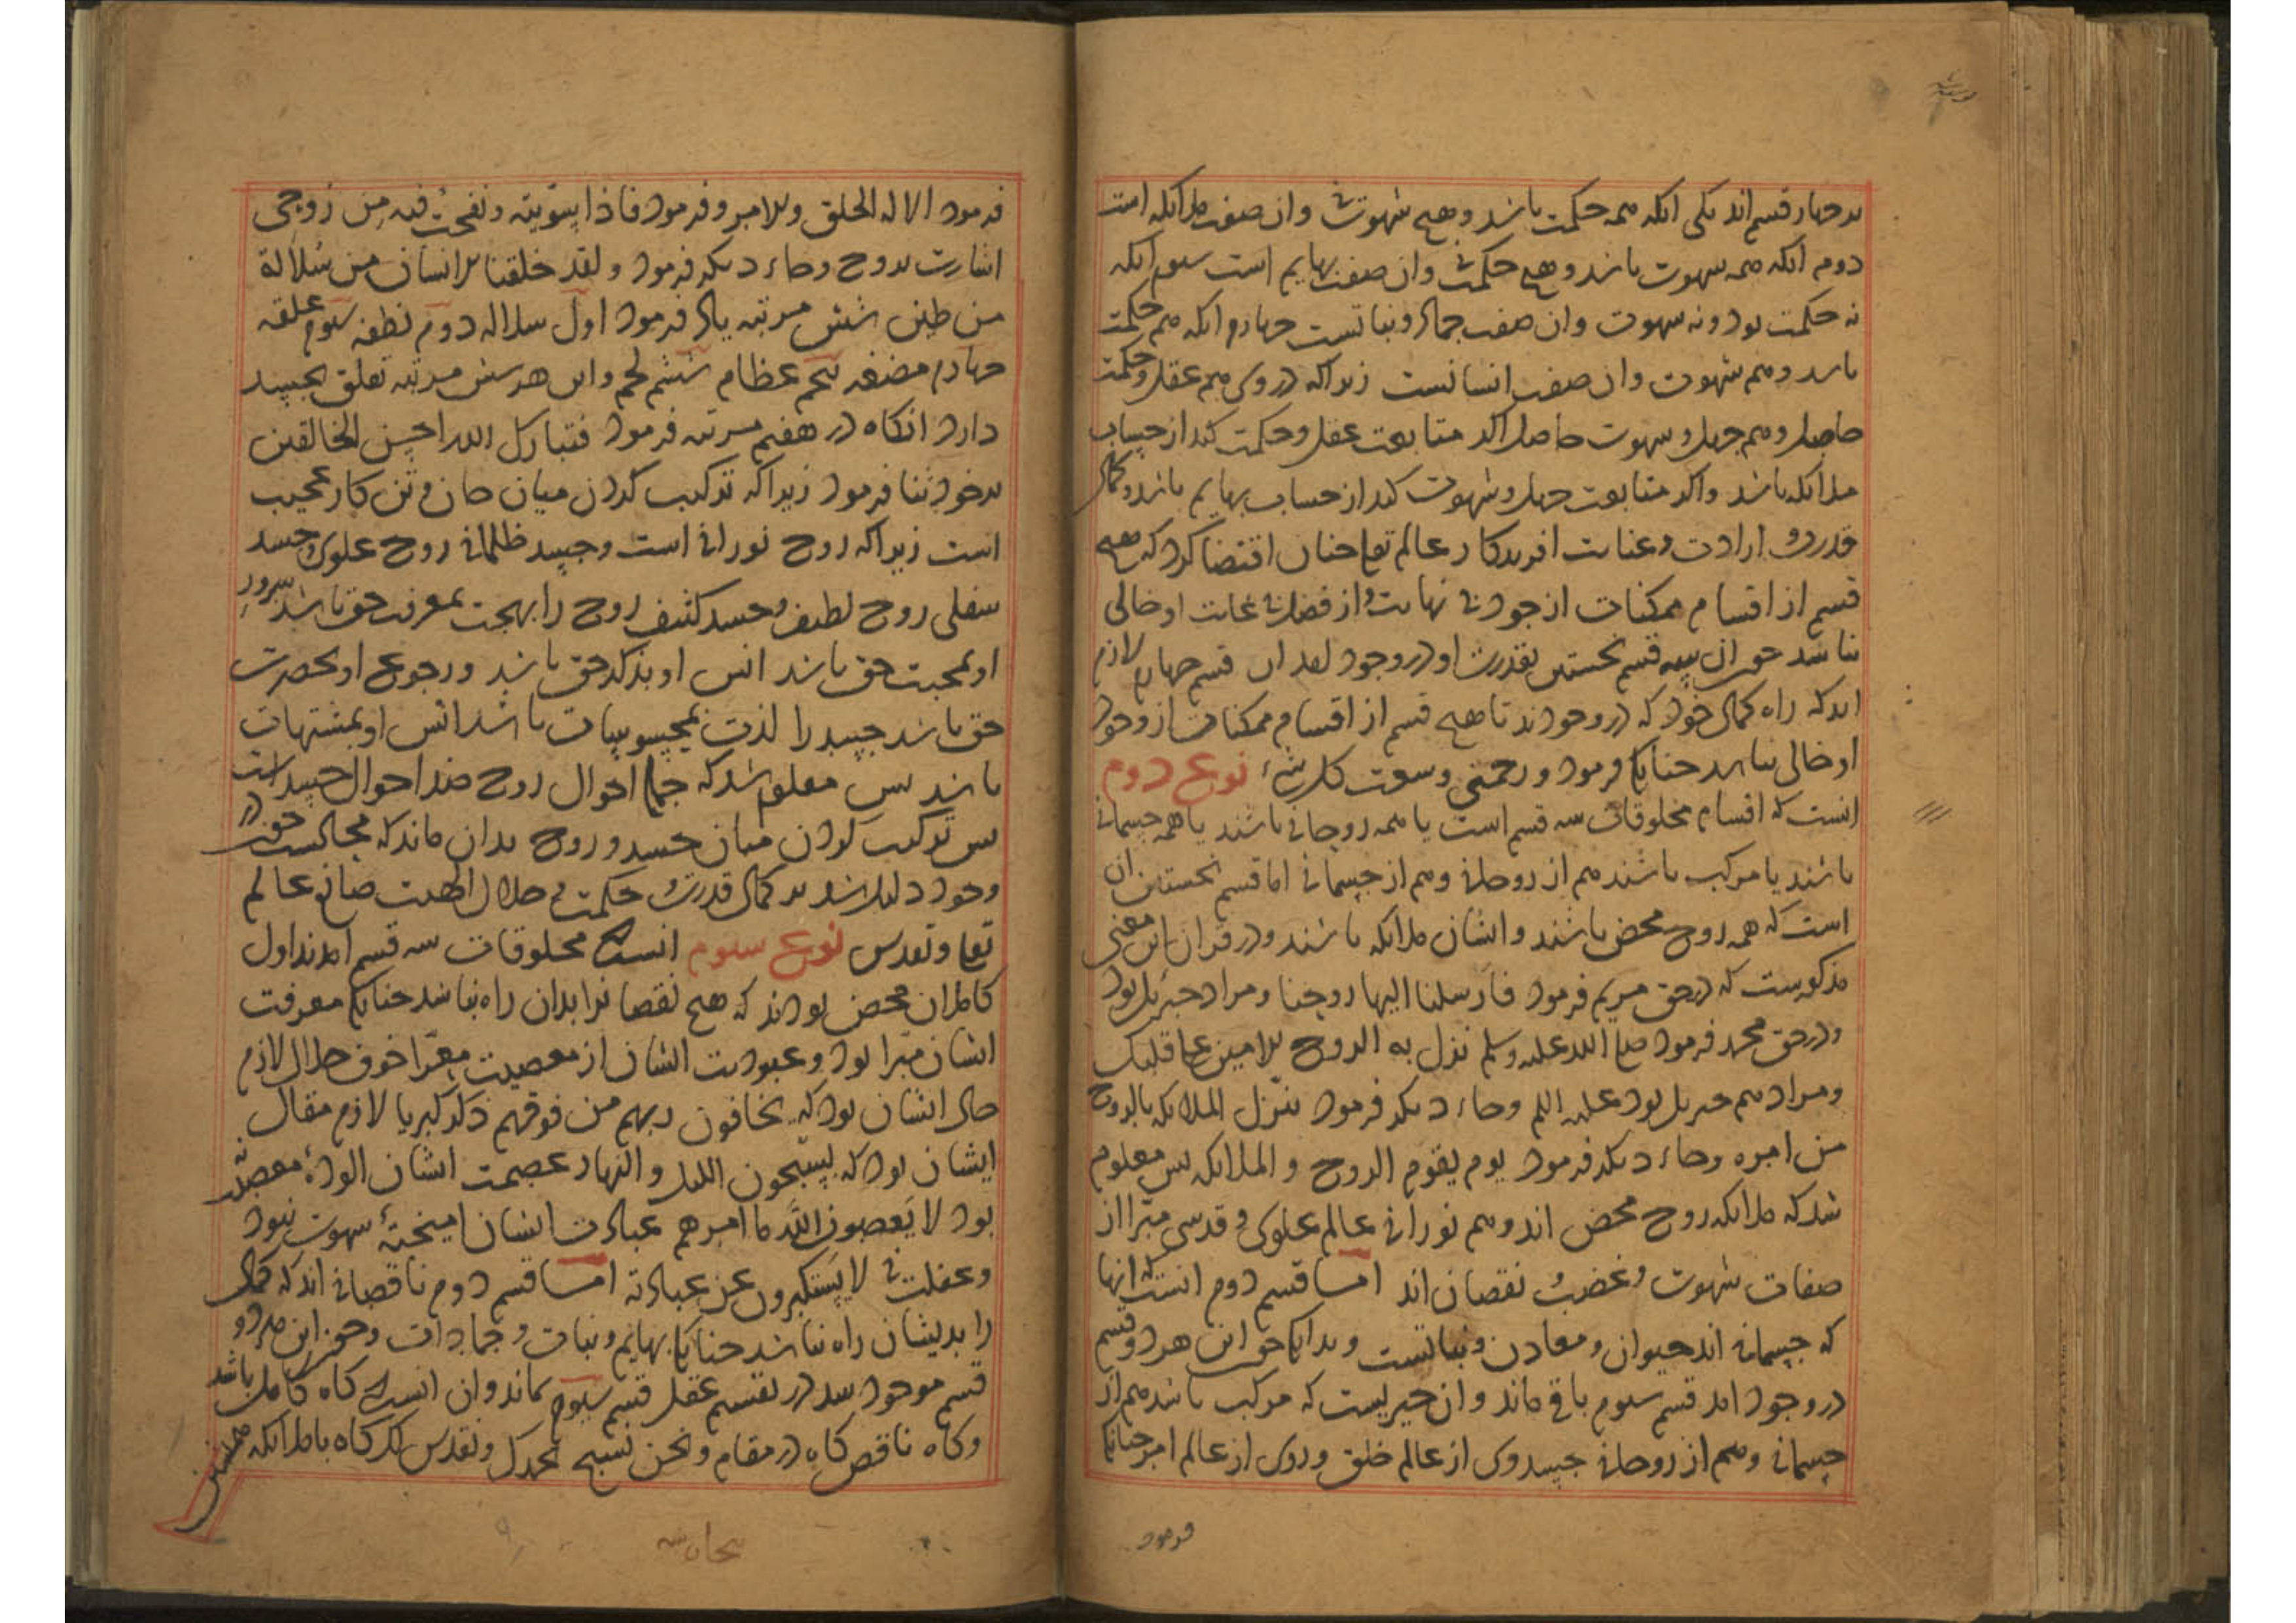 بر چهار قسم اند یکی آنکه همه حکمت باشد و هیچ شهوت نی و آن صفت ملائکه است
دوم آنکه همه شهوت باشد و هیچ حکمت نی و آن صفت بهایم است سیوم آنکه
نه حکمت بود و نه شهوت و آن صفت جماد و نباتست چهارم آنکه هم حکمت
باشد و هم شهوت و آن صفت انسانست زیرا که در وی هم عقل و حکمت
حاصل و هم جهل و شهوت حاصل اگر متابعت عقل و حکمت کند از حساب
ملائکه باشد و اگر متابعت جهل و شهوت کند از حساب بهایم باشد و کمال
قدرت و ارادت و عنایت آفریدگار عالم تعالی چنان اقتضا کرد که هیچ
قسم از اقسام ممکنات از جود بی نهایت و از فضل بی غایت او خالی
نباشد چون آن سه قسم نخستین بقدرت او در وجود آمد این قسم چهارم لازم
آمد که راه کمال خود که در وجود آمد تا هیچ قسم از اقسام ممکنات از وجود
او خالی نباشد چنانکه فرمود و رحمتی وسعت کل شیء نوع دوم
آنست که اقسام مخلوقات سه قسم است یا همه روحانی باشند یا همه جسمانی
باشند یا مرکب باشند هم از روحانی و هم از جسمانی اما قسم نخستین آن
است که همه روح محض باشند و ایشان ملائکه باشند و در قرآن این معنی
مذکورست که در حق مریم فرمود فارسلنا الیها روحنا و مراد جبرئیل بود
و در حق محمد فرمود صلی الله علیه وسلم نزل به الروح الامین علی قلبک
و مراد هم جبریل بود علیه السلم و جاء دیگر فرمود ینزل الملائکه بالروح
من امره و جاء دیگر فرمود یوم یقوم الروح و الملائکه پس معلوم
شد که ملائکه روح محض اند و هم نورانی عالم علوی و قدسی مبرا از
صفات شهوت و غضب و نقصان اند اما قسم دوم آنست که آنها
که جسمانی اند حیوان و معادن و نباتست و بدانکه چون این هر دو قسم
در وجود آمد قسم سیوم باقی ماند و آن چیزیست که مرکب باشد هم از
جسمانی و هم از روحانی جسد وی از عالم خلق و روی از عالم امر چنانکه
فرمود
فرمود الا له الخلق والامر و فرمود فاذا سویته و نفخت فیه من روحی
اشارت بروح و جاء دیگر فرمود و لقد خلقنا الانسان من سلالة
من طین شش مرتبه یاد فرمود اول سلاله دوم نطفه سیوم علقه
چهارم مضغه پنجم عظام ششم لحم و این هر شش مرتبه تعلق بجسد
دارد آنگاه در هفتم مرتبه فرمود فتبارک الله احسن الخالقین
بر خود ثنا فرمود زیرا که ترکیب کردن میان جان و تن کار عجیب
است زیرا که روح نورانی است و جسد ظلمانی روح علوی و جسد
سفلی روح لطیف و جسد کثیف روح را بهجت بمعرفت حق باشد سرور
او بمحبت حق باشد انس او بذکر حق باشد و رجوع او بحضرت
حق باشد جسد را لذت بمحسوسات باشد انس او بمشتهیات
باشد پس معلوم شد که جمله احوال روح ضد احوال جسد است
پس ترکیب کردن میان جسد و روح بدان ماند که مجالست
وجود دلیل باشد بر کمال قدرت و حکمت و جلال الهیت صانع عالم
تعالی و تقدس نوع سیوم آنست که مخلوقات سه قسم آمدند اول
کاملان محض بودند که هیچ نقصان را بدان راه نباشد چنانکه معرفت
ایشان مبرا بود و عبودیت ایشان از معصیت معرا خوف جلال لازم
حال ایشان بود که یخافون ربهم من فوقهم ذکر کبریا لازم مقال
ایشان بود که یسبحون اللیل و النهار عصمت ایشان آلودۀ معصیت
بود لا یعصون الله ما امرهم عبادت ایشان آمیختۀ شهوت نبود
و غفلت نی لا یستکبرون عن عبادته اما قسم دوم ناقصانی اند که کمال
را بدیشان راه نباشد چنانکه بهایم و نبات و جمادات و چون این هر دو
قسم موجود شد در تقسیم عقل قسم سیوم بماند و آن آنست که گاه کامل باشد
و گاه ناقص گاه در مقام و نحن نسبح بحمدک و نقدس لک گاه با ملائکه همنشین